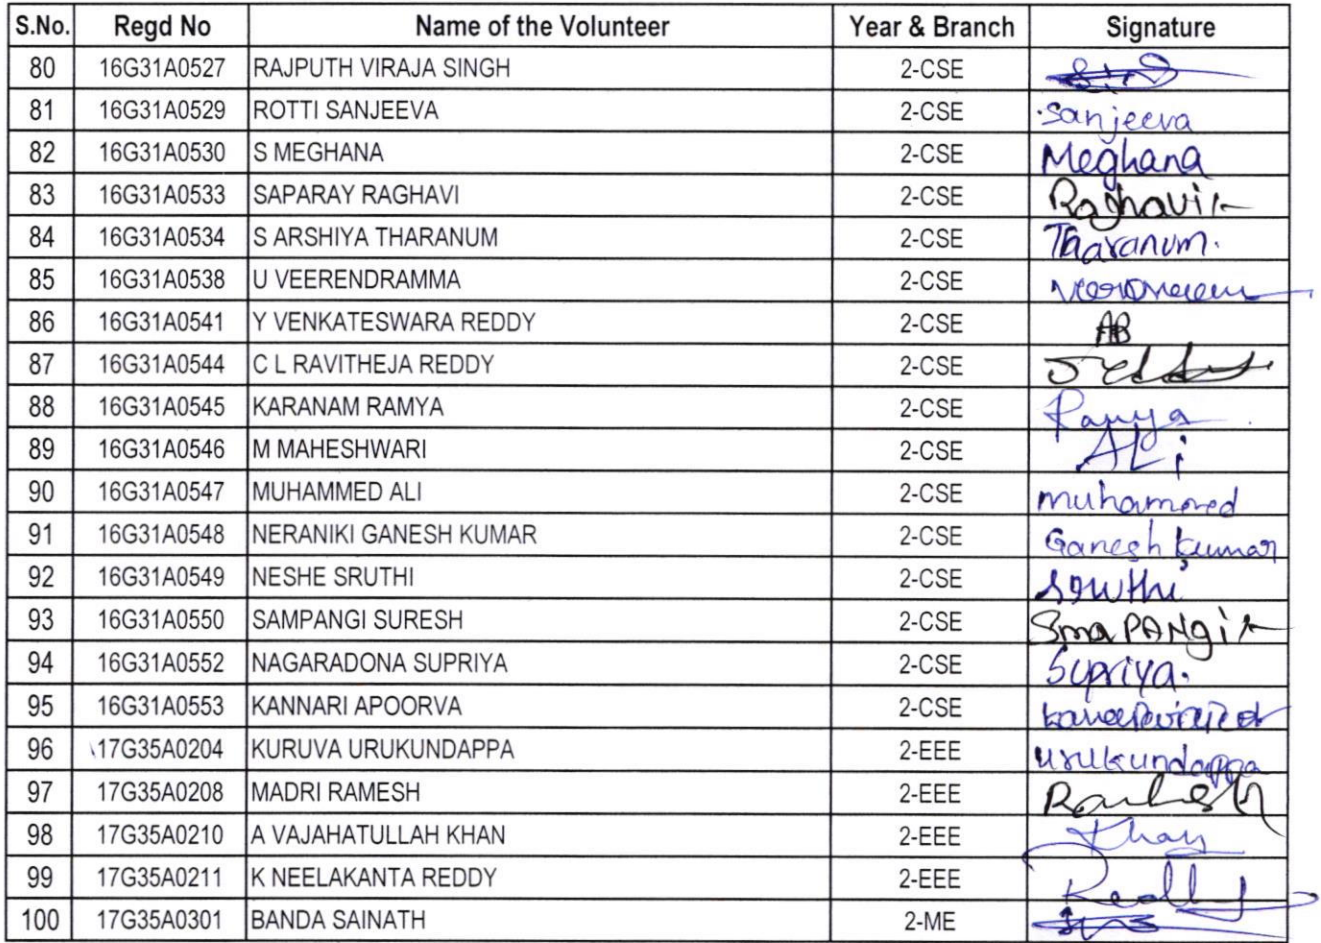 S.No. Regd No Name of the Volunteer Year & Branch Signature
80 16G31A0527 RAJPUTH VIRAJA SINGH 2-CSE
81 16G31A0529 ROTTI SANJEEVA 2-CSE Sanjeeva
82 16G31A0530 S MEGHANA 2-CSE Meghana
83 16G31A0533 SAPARAY RAGHAVI 2-CSE Raghavi
84 16G31A0534 S ARSHIYA THARANUM 2-CSE Tharanum.
85 16G31A0538 U VEERENDRAMMA 2-CSE
86 16G31A0541 Y VENKATESWARA REDDY 2-CSE AB
87 16G31A0544 C L RAVITHEJA REDDY 2-CSE
88 16G31A0545 KARANAM RAMYA 2-CSE Ramya
89 16G31A0546 M MAHESHWARI 2-CSE ALi
90 16G31A0547 MUHAMMED ALI 2-CSE muhammed
91 16G31A0548 NERANIKI GANESH KUMAR 2-CSE Ganesh kumar
92 16G31A0549 NESHE SRUTHI 2-CSE Sruthi
93 16G31A0550 SAMPANGI SURESH 2-CSE SmaPANGi
94 16G31A0552 NAGARADONA SUPRIYA 2-CSE Supriya.
95 16G31A0553 KANNARI APOORVA 2-CSE
96 17G35A0204 KURUVA URUKUNDAPPA 2-EEE urukundappa
97 17G35A0208 MADRI RAMESH 2-EEE
98 17G35A0210 A VAJAHATULLAH KHAN 2-EEE Khan
99 17G35A0211 K NEELAKANTA REDDY 2-EEE Reddy
100 17G35A0301 BANDA SAINATH 2-ME